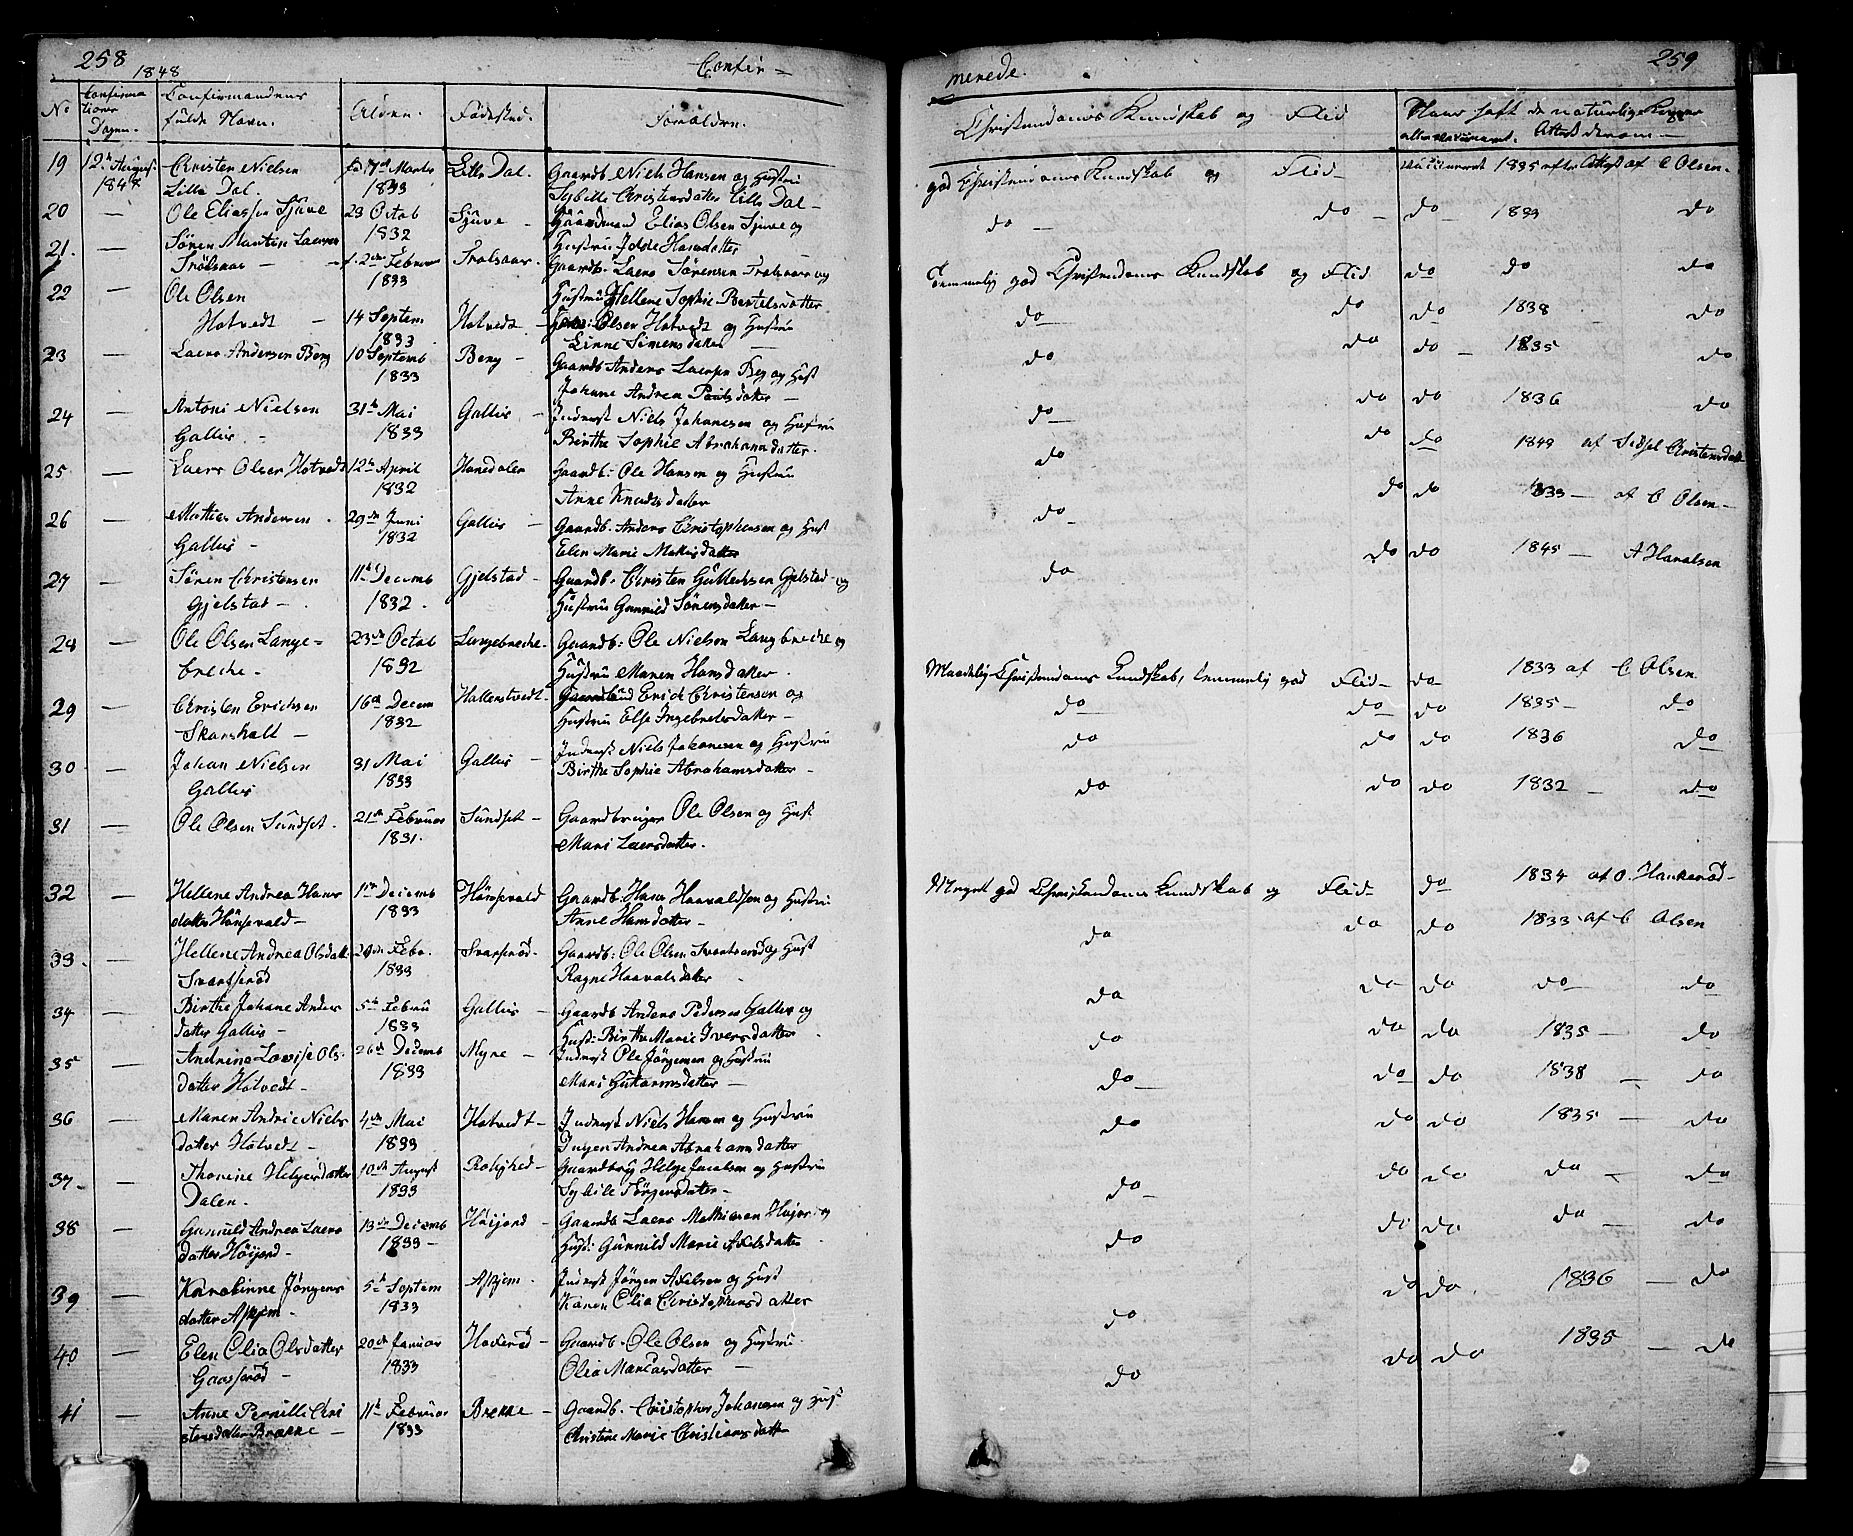 258
1848
Confir-
No
Confirma
tions
Dagen.
Confirmandens
fulde Navn.
Alder.
Fødested.
Forældre.
19 12te August 1848
Christen Nielsen
Lille Dal.
1833
Lille Dal.
Gaardb Niels Hansen og Hustru
Sybille Christensdatter Lille Dal -
20 - Ole Eliassen Sjuve
23 Octob
1832
Sjuve -
Gaardmand Elias Olsen Sjuve og
Hustru Hansdatter
21. - Søren Martin Laersen
Trolsaas -
1833
Trolsaas.
Gaardb. Laers Sörensen Trolsaas og
Hustru Hellene Sophie Bertelsdatter
22 - Ole Olsen
Hotvedt -
14 Septem
1833
Hotvedt -
Olsen Hotvedt og Hustru
Simensdatter -
23 - Laers Andersen Berg
10 Septemb
1833
Berg -
Gaardb Anders Laersen Beg og Hust
Johane Andrea Poulsdatter -
24 - Antoni Nielsen
Gallis. -
31te Mai
1833
Gallis -
Inderst Niels Johanesen og Hustru
Birthe Sophie Abrahamsdatter.
25 - Laers Olsen Hotvedt
12te April
1832
Hanedalen
Gaardb: Ole Hansen og Hustru
Anne Knudsdatter
26 - Mathias Andersen.
Gallis -
29de Juni
1832
Gallis -
Gaardb. Anders Christophersen og Hust
Elen Marie
27 - Sören Christensen
Gjelstad -
11te Decemb
1832.
Gjelstad -
Gaardb: Christen Gulliksen Gjelstad og
Hustru Gunnild Sörensdatter -
28 - Ole Olsen Lange-
breche -
23de Octob
1832
Langebreche -
Gaardb: Ole Nielsen Langbreche og
Hustru Maren Hansdatter
29 - Christen Erichsen
Skarsholt -
16de Decem
1832
Hallenstvedt -
Erick Christensen og
Hustru Else Ingebretsdatter -
30 - Johan Nielsen
Gallis
31 Mai
1833
Gallis -
Inderst Niels Johanesen og Hustru
Birthe Sophie Abrahamsdatter -
31 - Ole Olsen Sundset.
21de Februar
1831.
Sundset -
Gaardbruger Ole Olsen og Hust
Mari Laersdatter.
32 - Hellene Andrea Hans
datter Hönsevald -
Decemb
1833
Hönsevald
Gaardb. Hans Haavaldsen og Hustru
Anne Hansdatter -
33 - Hellene Andrea Olsdatt
Svartsröd
Febr.
1833
Svarseröd -
Gaardb: Ole Olsen og Hust
Ragne Haavalsdatter
34 - Birthe Johane Anders
datter Gallis -
5te Febru
1833
Gallis -
Gaardb Anders Pedersen Gallis og
Hust: Birthe Marie Iversdatter
35 - Andrine Lovise Ols-
datter Hotvedt -
26de Decemb
1833
Myre -
Inderst Ole Jörgensen og Hustru
Mari Guttormsdatter -
36 - Maren Andrie Niels
datter Hotvedt -
4de Mai
1833
Hotvedt -
Inderst Niels Hansen og Hustru
Ingen Andrea Abrahamsdatter
37 - Thorine Helgesdatter
Dalen.
10de August
1833
Rolighed -
Gaardbrg Helge Jacobsen og Hustru
Sybille Törgensdatter -
38 - Gunnild Andrea Laers
datter Höijord -
13de Decemb
1833 -
Höijord -
Gaardb Laers Mathisen Höjord og
Hust: Gunnild Marie Axelsdatter
39 - Karobinne Jörgens
datter Askjem -
5te Septem
1833
Askjem.
Inderst Jörgen Axelsen og Hust
Karen Olia Christophersdatter
40 - Elen Olia Olsdatter
Gaasseröd -
20de Januar
1833
Haderöd -
Gaardb. Ole Olsen og Hustru.
Olia Mariasdatter -
41 - Anne Pernille Chri
stensdatter Brekke -
11te Februar
1833
Brekke -
Gaardb. Christopher Johansen og Hust
Christine Marie Christiansdatter
259
merede.
Christendoms Kundskab og Flid
Have haft de naturlige Kopper
eller vaccineret. Attest derom -
god Christendoms Kundskab og Flid
vaccineret 1835 efter Attest af C Olsen -
do - do - do - 1833 do
Temmelig god Christendoms Kundskab og Flid do do do
do do do 1838 - do
do do do - 1835 do
do do do 1836 - do
do do do 1849 af Sidsel Christensdatt
do do do 1833 - af C Olsen -
do do do 1845 - A Haralsen
Maadelig Christendoms Kundskab, temmelig god Flid - do 1833 af C Olsen
do do do 1835 - do
do do do 1836 do
do do do 1832 - do
Meget god Christendoms Kundskab og Flid do 1834 af O. Hankeröd -
do do do 1833 af C Olsen
do do do do - do
do do do 1835 - do
do - do do 1838 - do
do do do 1835 - do
do - do do do - do
do do do do - do
do do do. 1836 - do
do do do 1835 - do